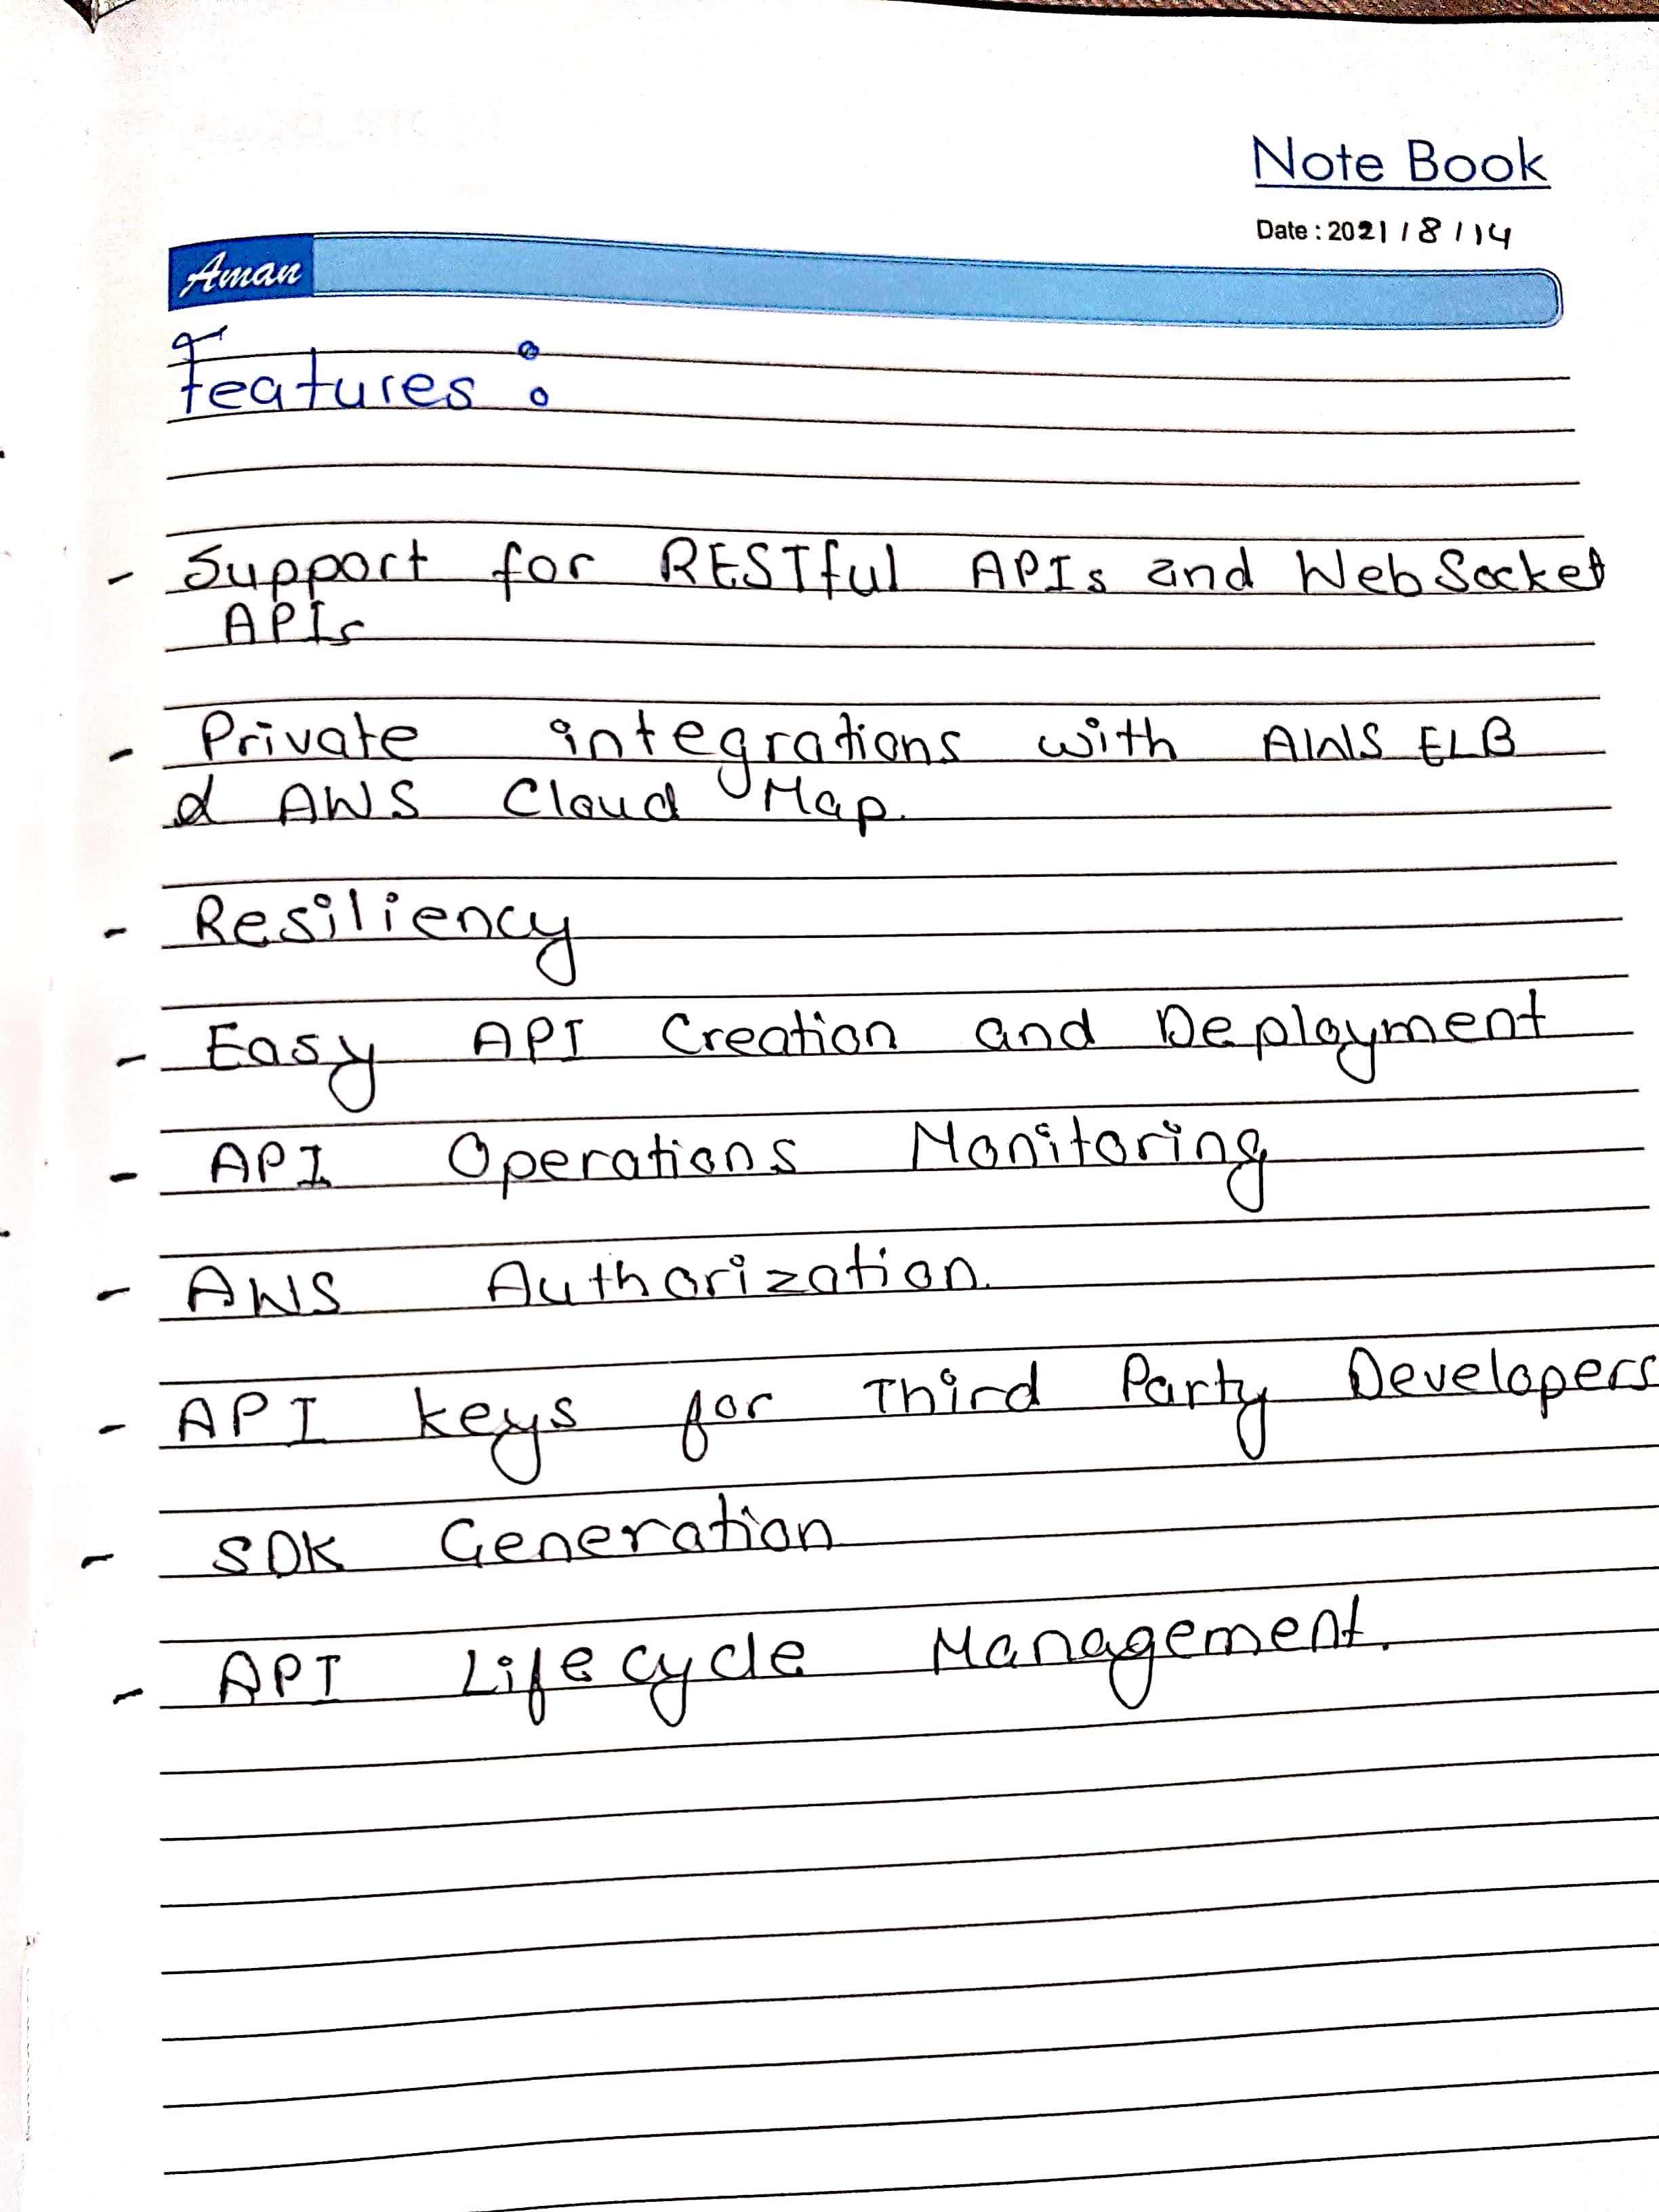 Note Book
Date : 2021 / 8 / 14
Aman
Features :
- Support for RESTful APIs and WebSocket
APIs
- Private integrations with AWS ELB
& AWS Cloud Map.
- Resiliency
- Easy API Creation and Deployment
- API Operations Monitoring
- AWS Authorization.
- API keys for Third Party Developers
- SDK Generation
- API Lifecycle Management.